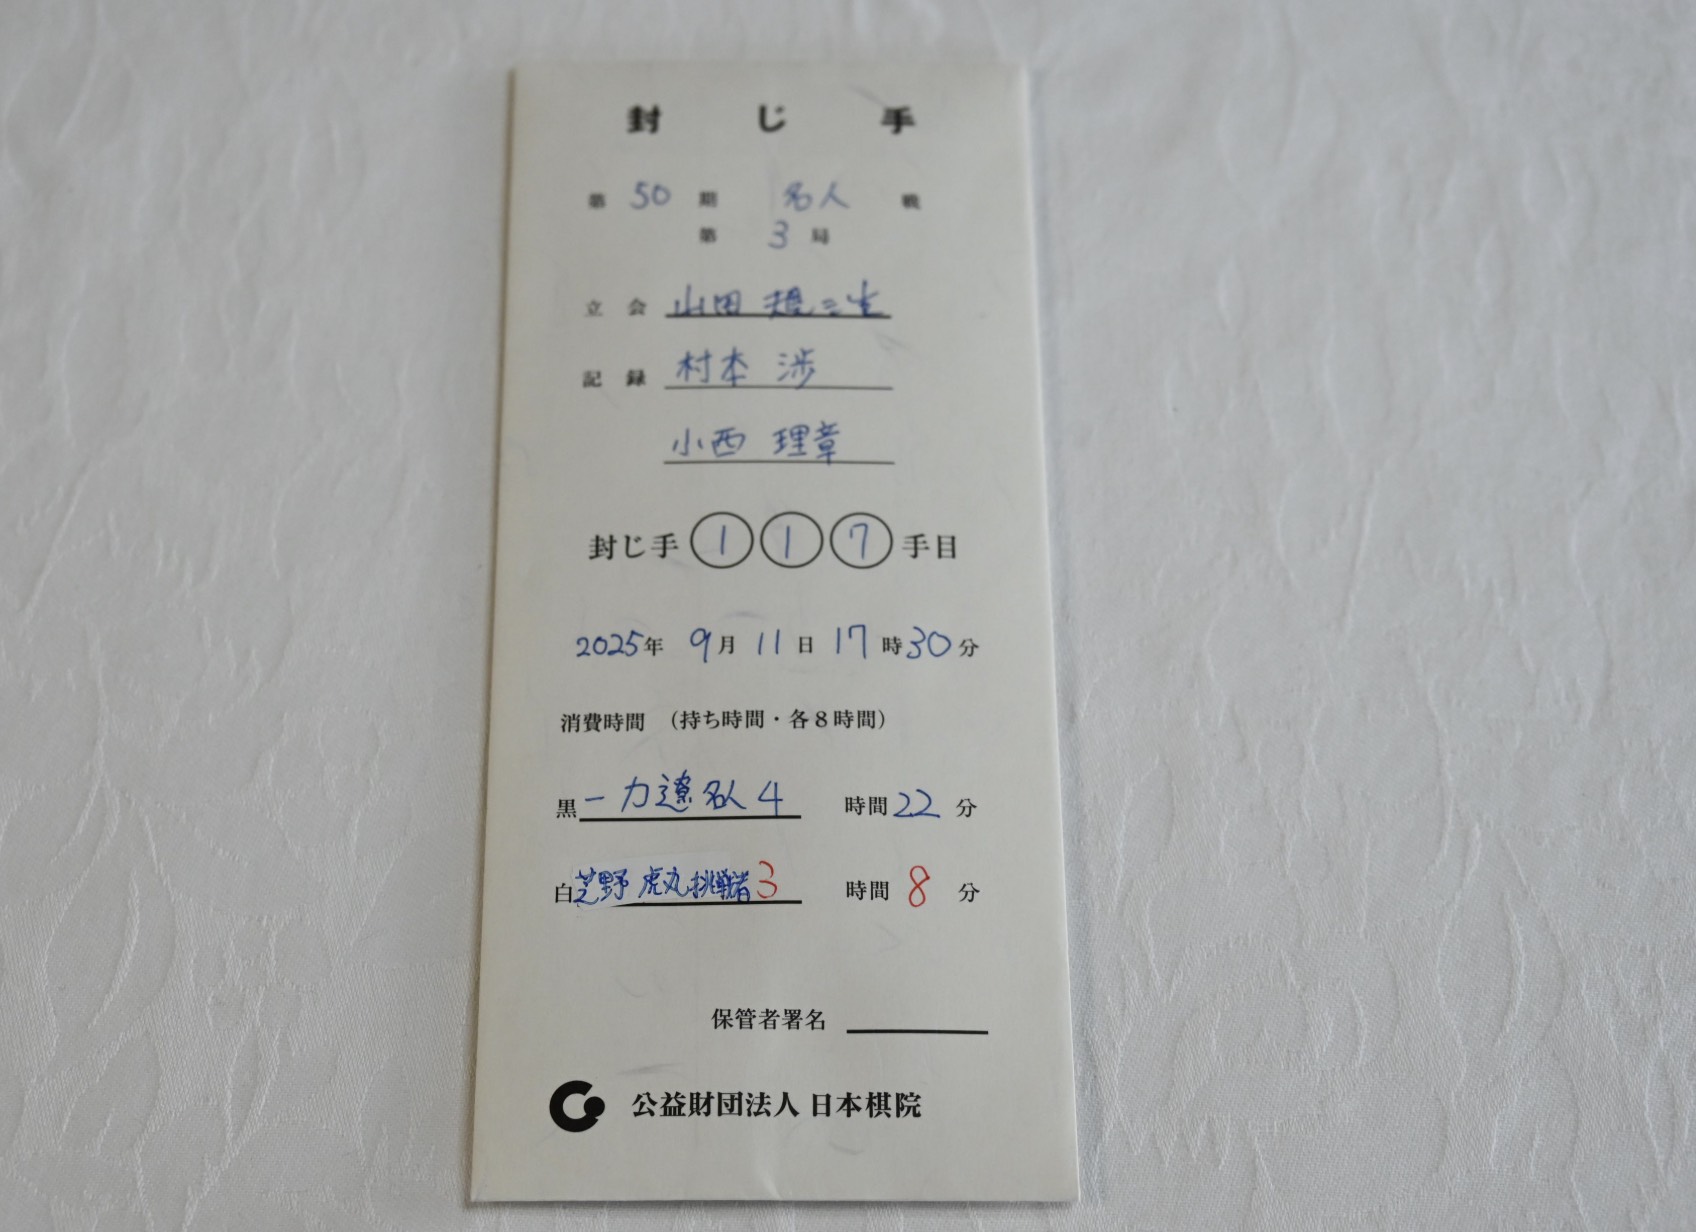 封じ手
第 50 期 名人 戦
第 3 局
立会 山田 規三生
記録 村本 渉
小西 理章
封じ手 1 1 7 手目
2025年 9月 11日 17時30分
消費時間 (持ち時間・各8時間)
黒 一力遼名人 4 時間 22 分
白 芝野 虎丸挑戦者 3 時間 8 分
保管者署名
公益財団法人 日本棋院